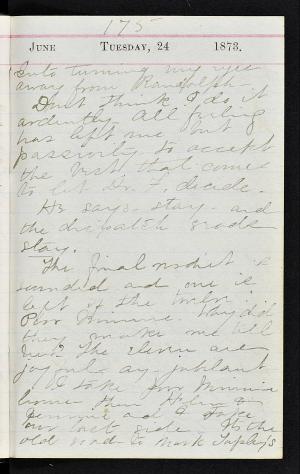 175
June Tuesday, 24 1873.
into turning my eyes
away from Randolph.
Don't think I do it
ardently. All feeling
has left me but
passivity to accept
the best, that comes
to let Dr. F. decide.
He says - stay - and
the dispatch reads
stay.
The final is
sounded and one is
left of the twelve.
Poor Minnie. Why did
they make me tell
her? The eleven are
joyful - ay - jubilant
I take poor Minnie
home then Helen &
Jennie and I take
our last ride. To the
old road to Mark Tapley's